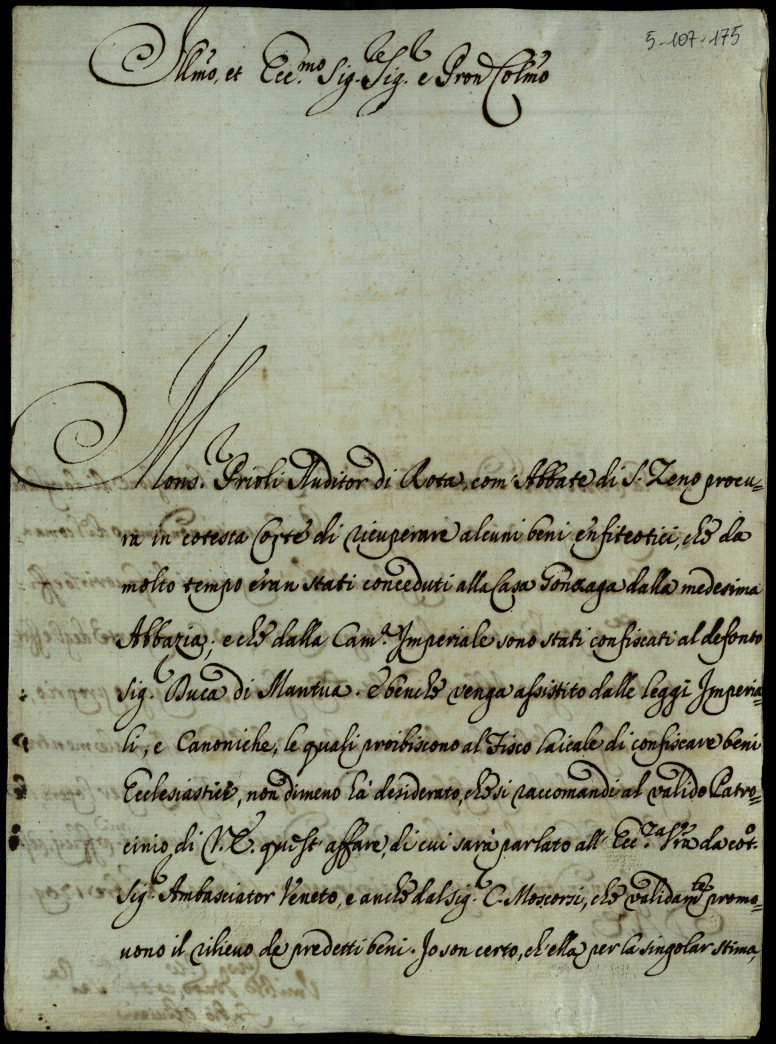 5-107-175
Illmo, et Ecc.mo Sig.re Sig.r e Pron Colmo
Mons.r Prioli Auditor di Rota, com' Abbate di S. Zeno procu=
ra in cotesta Corte di ricuperare alcuni beni enfiteotici, che da
molto tempo eran stati conceduti alla Casa Gonzaga dalla medesima
Abbazia; e che dalla Cam.a Imperiale sono stati confiscati al defonto
Sig.r Duca di Mantua. e benche venga assistito dalle leggi Imperia=
li, e Canoniche, le quali proibiscono al Fisco laicale di confiscare beni
Ecclesiastici, non dimeno hà desiderato, che si raccomandi al valido Patro=
cinio di V.E. quest' affare, di cui sarà parlato all' Ecc.za Vra da cot.o
Sig.r Ambasciator Veneto, e anche dal Sig.r C. Moscorsi, che validam.te promo=
vono il rilievo de predetti beni. Io son certo, ch'ella per la singolar stima,